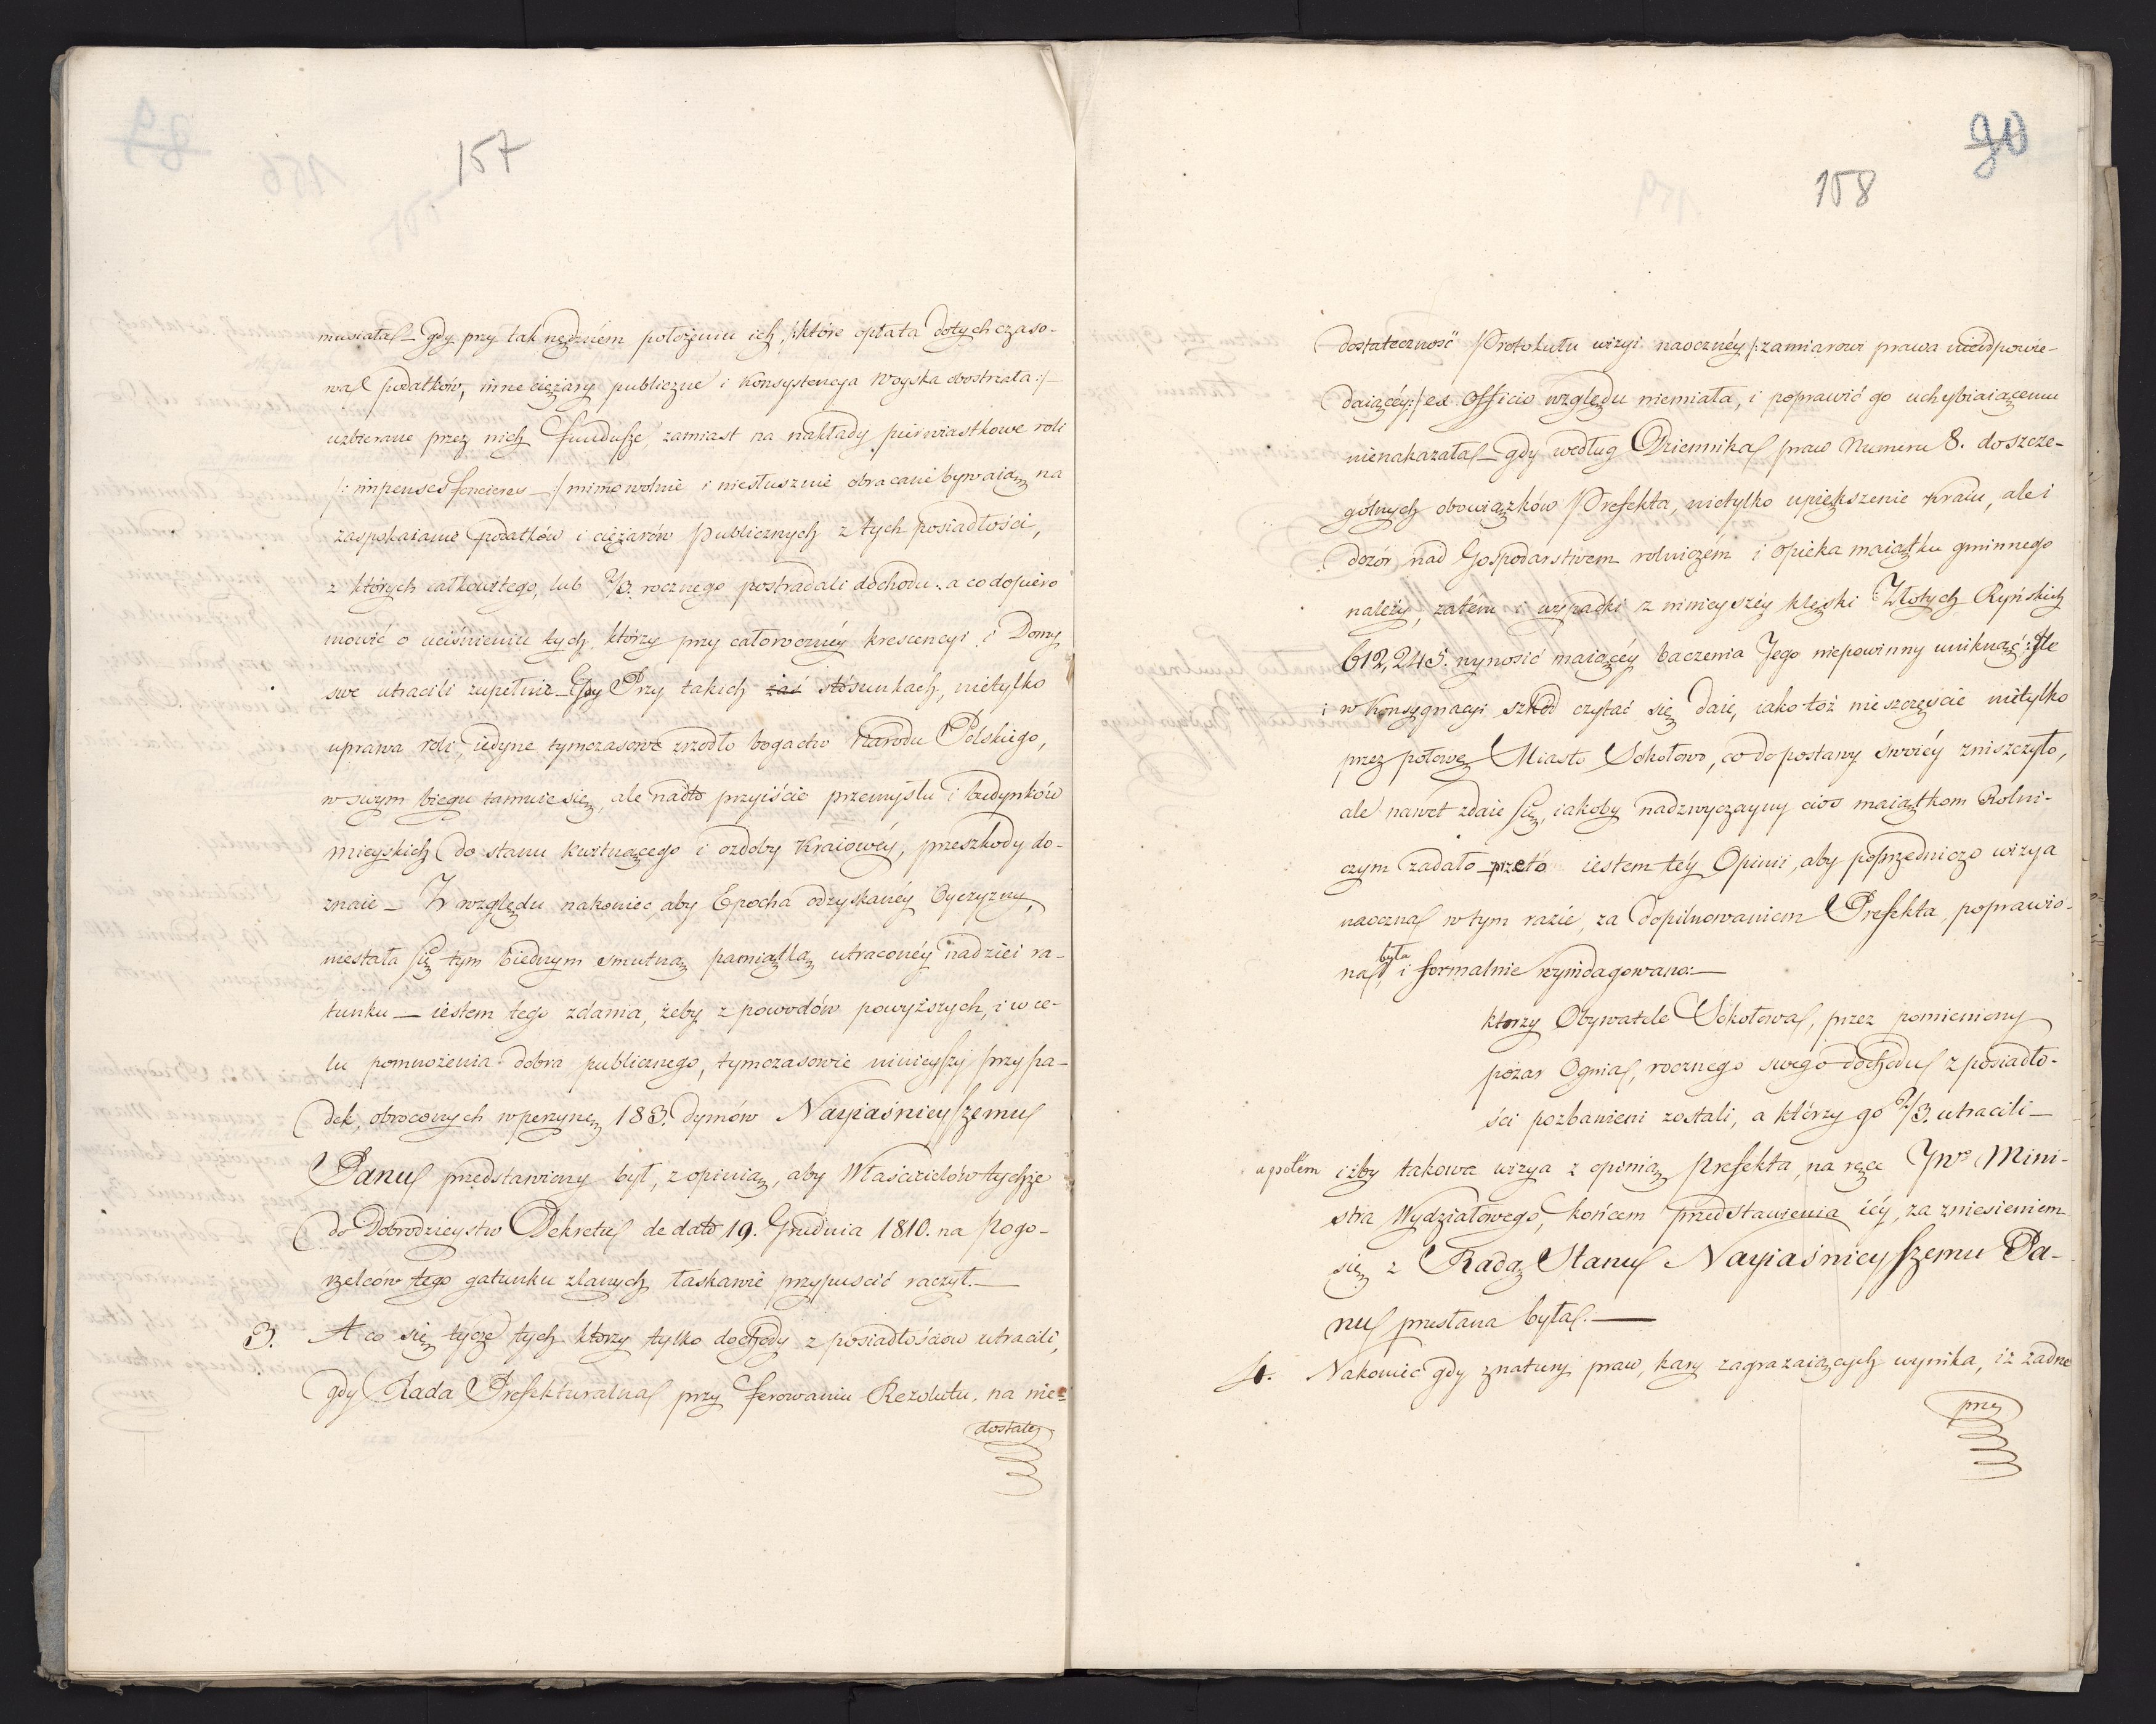 157
musiała – gdy przy tak nędzném położeniu ich, /:które opłata dotychczaso-
wa podatków, inne ciężary publiczne i Konsystencya Woyska obostrzała:/ –
uzbierane przez nich fundusze, zamiast na nakłady pierwiastkowe roli
/: impenses foncieres –:/ mimowolnie i niesłusznie obracane bywaią na
zaspokaianie podatków i ciężarów Publicznych z tych posiadłości,
z których całkowitego, lub 2/3. rocznego postradali dochodu: a co dopiero
mowić o uciśnieniu tych, którzy przy całoroczney krescencyi i Domy
swe utracili zupełnie – Gdy Przy takich zaś stósunkach, nietylko
uprawa roli, iedyne tymczasowe zrzodło bogactw Narodu Polskiego,
w swym biegu tamuie się, ale nadto przyiście przemysłu i budynków
mieyskich do stanu kwitnącego i ozdoby Kraiowéy, przeszkody do-
znaie – W względu nakoniec, aby Epocha odzyskanéy Oyczyzny,
niestała się tym biednym smutną pamiątką utraconéy nadziei ra-
tunku – iestem tego zdania, żeby z powodów powyższych, i w ce-
lu pomnożenia dobra publicznego, tymczasowie ninieyszy przypa-
dek, obroconych w perzynę 183. dymów Nayiaśnieyszemu
Panu przedstawiony był, z opinią, aby Właścicielów tychże
do Dobrodzieystw Dekretu de dato 19. Grudnia 1810. na Pogo-
rzelców tego gatunku zlanych, łaskawie przypuscić raczył. –
3. A co się tycze tych którzy tylko dochody z posiadłościow utracili,
gdy Rada Prefekturalna przy ferowaniu Rezolutu, na nie-
dostate
90
158
dostateczność Protokułu wizyi naocznéy /:zamiarowi prawa nieodpowie-
daiącéy:/ ex officio względu niemiała, i poprawić go uchybiaiącemu
nienakazała – gdy według Dziennika praw Numeru 8. do szcze-
gólnych obowiązków Prefekta, nietylko upiększenie Kraiu, ale i
dozór nad Gospodarstwem rolniczém i opieka maiątku gminnego
należy, zatém i wypadki z ninieyszéy klęski Złotych Ryńskich
612,245. wynosić maiącéy baczenia Jego niepowinny uniknąć: Ile
i w Konsygnacyi szkód czytać się daie, iako toż nieszczęście nietylko
przez połowę Miasto Sokołowo, co do postawy swoiéy zniszczyło,
ale nawet zdaie się, iakoby nadzwyczayny cios maiątkom Rolni-
czym zadało – przeto iestem téy Opinii, aby poprzedniczo wizya
naoczna w tym razie, za dopilnowaniem Prefekta, poprawio-
na była i formalnie wyindagowano: –
ktorzy Obywatele Sokołowa, przez pomieniony
pożar Ognia, rocznego swego dochodu z posiadło-
ści pozbawieni zostali, a którzy go 2/3. utracili –
a potém iżby takowa wizya z opinią Prefekta, na ręce JWo Mini-
stra Wydziałowego, końcem przedstawienia iéy, za zniesieniem
się z Radą Stanu Nayiaśnieyszemu Pa-
nu przesłana była. –
4. Nakoniec gdy z natury praw, kary zagrażaiących wynika, iż żadne
przy